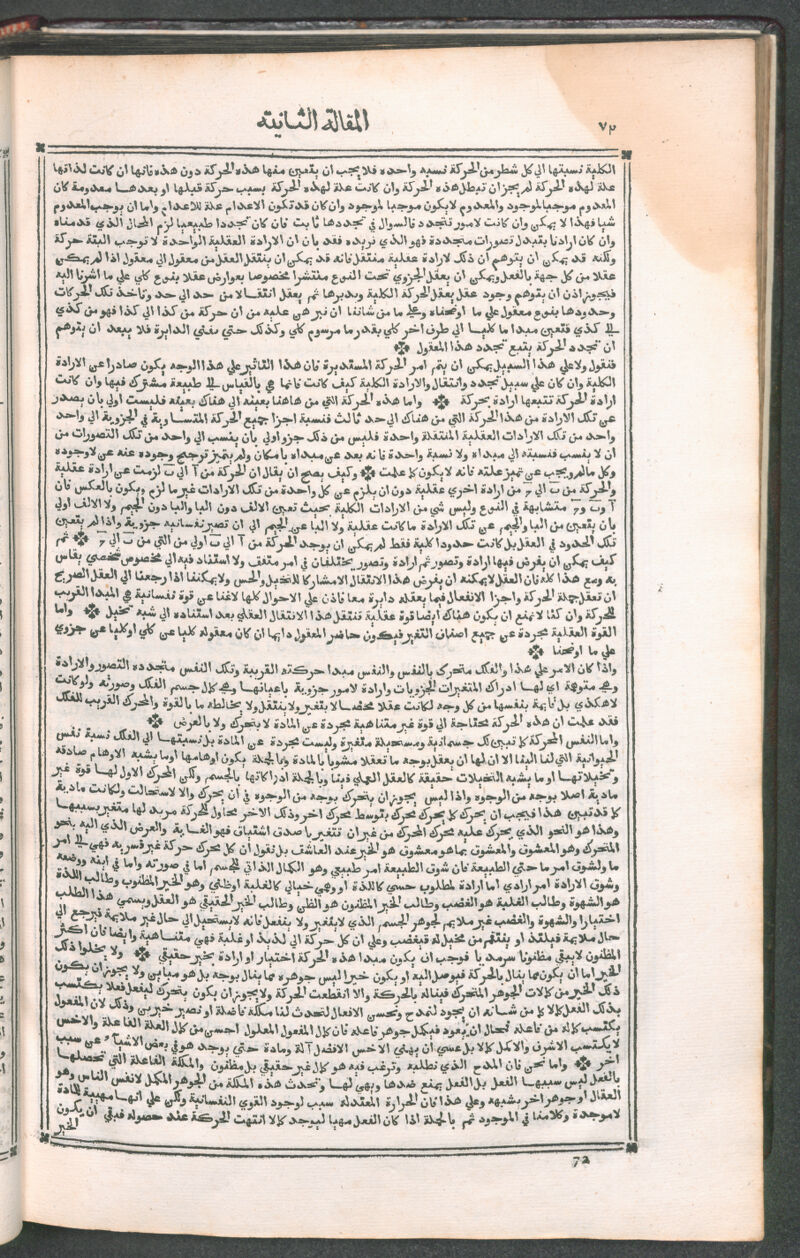 ٧٢
المقالة الثانية
الكلية نسبتها الي كل شطر من الحركة نسبة واحدة فلا يجب ان يتعين منها هذه الحركة دون هذه فانها ان كانت لذاتها
علة لهذه الحركة لم يجز ان تبطل هذه الحركة وان كانت علة لهذه الحركة بسبب حركة قبلها او بعدها معدومة كان
المعدوم موجبا لموجود والمعدوم لا يكون موجبا لموجود وان كان قد تكون الاعدام علة للاعدام واما ان يوجب المعدوم
شيا فهذا لا يمكن وان كانت لامور تتجدد فالسوال في تجددها ثابت فان كان تجددا طبيعيا لزم المحال الذي قدمناه
وان كان اراديا يتبدل تصورات متجددة فهو الذي نريده فقد بان ان الارادة العقلية الواحدة لا توجب البتة حركة
ولكنه قد يمكن ان يتوهم ان ذلك لارادة عقلية منتقل فانه قد يمكن ان ينتقل العقل من معقول الي معقول اذا لم يكن
عقلا من كل جهة بالفعل ويمكن ان يعقل الجزوي تحت النوع منتشرا مخصوصا بعوارض عقلا بنوع كلي علي ما اشرنا اليه
فيجوز اذن ان يتوهم وجود عقل يعقل الحركة الكلية ويديرها ثم يعقل انتقالا من حد الي حد وتاخذ تلك الحركات
وحدودها بنوع معقول علي ما اوضحناه وعلي ما من شاننا ان نبرهن عليه من ان حركة من كذا الي كذا فهو من كذي
الي كذي فتعين مبدا ما كليا الي طرف اخر كلي بقدر ما مرسوم كلي وكذلك حتي يفني الدايرة فلا يبعد ان يتوهم
ان تجدد الحركة يتبع تجدد هذا المعقول
فنقول ولا علي هذا السبيل يمكن ان يتم امر الحركة المستديرة فان هذا التاثير علي هذا الوجه يكون صادرا عن الارادة
الكلية وان كان علي سبيل تجدد وانتقال والارادة الكلية كيف كانت فانما هي بالقياس الي طبيعة مشترك فيها وان كانت
ارادة الحركة تتبعها ارادة بحركة واما هذه الحركة التي من هاهنا بعينه الي هناك بعينه فليست اولي بان يصدر
عن تلك الارادة من هذا الحركة التي من هناك الي حد ثالث فنسبة اجزا جميع الحركة المتساوية في الجزوية الي واحد
واحد من تلك الارادات العقلية المنتقلة واحدة فليس من ذلك جزو اولي بان ينسب الي واحد من تلك التصورات من
ان لا ينسب فنسبته الي مبداه ولا نسبة واحدة فانه بعد عن مبداه بامكان ولم يتميز ترجيح وجوده عنه عن لا وجوده
وكل ما لم يجب عن تميز علته فانه لا يكون كما علمت وكيف يصح ان يقال ان الحركة من آ الي ب لزمت عن ارادة عقلية
والحركة من ب الي ج من ارادة اخري عقلية دون ان يلزم عن كل واحدة من تلك الارادات غير ما لزم ويكون بالعكس فان
آ وب وج متشابهة في النوع وليس شي من الارادات الكلية بحيث تعين الالف دون البا والبا دون الجيم ولا الالف اولي
بان يتعين من البا والجيم عن تلك الارادة ما كانت عقلية ولا البا عن الجيم الي ان تصير نفسانية جزوية واذا لم يتعين
تلك الحدود في العقل بل كانت حدودا كلية فقط لم يمكن ان يوجد الحركة من آ الي ب اولي من التي من ب الي ج ثم
كيف يمكن ان يفرض فيها ارادة وتصور ثم ارادة وتصور يختلفان في امر متفق ولا استناد فيه الي مخصوص شخصي يقاس
به ومع هذا كله فان العقل لا يمكنه ان يفرض هذا الانتقال الا مشاركا للتخيل والحس ولا يمكننا اذا رجعنا الي العقل الصريح
ان نعقل جملة الحركة واجزا الانتقال فيما يعقله دايرة معا فاذن علي الاحوال كلها لا غنا عن قوة نفسانية هي المبدا القريب
للحركة وان كنا لا نمنع ان يكون هناك ايضا قوة عقلية تنتقل هذا الانتقال العقلي بعد استناده الي شبه تخيل واما
القوة العقلية مجردة عن جميع اصناف التغير فيكون حاضر المعقول دايما ان كان معقوله كليا عن كلي او كليا عن جزوي
علي ما اوضحنا
واذا كان الامر علي هذا والفلك متحرك بالنفس والنفس مبدا حركته القريبة وتلك النفس متجددة التصور والارادة
وهي متوهمة اي لها ادراك المتغيرات الجزويات وارادة لامور جزوية باعيانها وهي كمال جسم الفلك وصورته ولو كانت
لا هكذي بل قايمة بنفسها من كل وجه لكانت عقلا محضا لا يتغير ولا ينتقل ولا يخالطه ما بالقوة والمحرك القريب للفلك
فقد علمت ان هذه الحركة محتاجة الي قوة غير متناهية مجردة عن المادة لا يتحرك ولا بالعرض
واما النفس المحركة كما تبين لك جسمانية ومستحيلة متغيرة وليست مجردة عن المادة بل نسبتها الي الفلك نسبة نفس
الحيوانية التي لنا الينا الا ان لها ان يعقل بوجه ما تعقلا مشوبا بالمادة وبالجملة يكون اوهامها او ما يشبه الاوهام صادقة
وتخيلاتها او ما يشبه التخيلات حقيقة كالعقل العملي فينا وبالجملة ادراكاتها بالجسم ولكن المحرك الاول لها قوة غير
مادية اصلا بوجه من الوجوه واذا ليس يجوز ان يتحرك بوجه من الوجوه في ان يحرك والا لاستحالت ولكانت مادية
كما قد تبين هذا فيجب ان يحرك كما يحرك محرك بتوسط محرك اخر وذلك الاخر محاول للحركة مريد لها متغير بسببها
وهذا هو النحو الذي يحرك عليه محرك المحرك من غير ان تتغير يا صدق اشتياق فهو الغاية والغرض الذي اليه ينحو
المتحرك وهو المعشوق والمعشوق بما هو معشوق هو الخير عند العاشق بل نقول ان كل محرك حركة غير قسرية فهي الي امر
ما ولشوق امر ما حتي الطبيعة فان شوق الطبيعة امر طبيعي وهو الكمال الذاتي للجسم اما في صورته واما في اينه ووضعه
وشوق الارادة امر ارادي اما ارادة لمطلوب حسي كاللذة او وهمي خيالي كالغلبة او ظني وهو الخير المظنون وطالب اللذة
هو الشهوة وطالب الغلبة هو الغضب وطالب الخير المظنون هو الظن وطالب الخير الحقيقي هو العقل ويسمي هذا الطلب
اختيارا والشهوة والغضب غير ملايم لجوهر الجسم الذي لا يتغير ولا ينفعل فانه لا يستحيل الي حال غير ملايمة فيرجع الي
حال ملايمة فيلتذ او ينتقم من مخيل له فيغضب وعلي ان كل حركة الي لذيذ او غلبة فهي متناهية وايضا فان اكثر
المظنون لا يبقي مظنونا سرمديا فوجب ان يكون مبدا هذه الحركة اختيار او ارادة بخير حقيقي ولا يخلوا ذلك
الخير اما ان يكون مما ينال بالحركة فيوصل اليه او يكون خيرا ليس جوهره مما ينال بوجه بل هو مباين ولا يجوز ان يكون
ذلك الخير من كمالات الجوهر المتحرك فيناله بالحركة والا انقطعت الحركة ولا يجوز ان يكون يتحرك ليفعل فعلا يكتسب
بذلك الفعل كمالا كما من شانه ان يجود لنمدح وتحسن الافعال لتحدث لنا ملكة فاضلة او نصير خيرين وذلك لان المفعول
يكتسب كماله من فاعله فمحال ان يعود فيكمل جوهر فاعله فان كمال المفعول المعلول اخس من كمال العلة الفاعلة والاخس
لا يكتسب الاشرف والاكمل كمالا بل عسي ان يهيي الاخس الافضل آلة ومادة حتي يوجد هو في بعض الاشيآ عن سبب
اخر واما نحن فان المدح الذي نطلبه وترغب فيه هو كمال غير حقيقي بل مظنون والملكة الفاعلة التي تحصلها
بالفعل ليس سببها الفعل بل الفعل يمنع ضدها ويهي لها وتحدث هذه الملكة من الجوهر المكمل لانفس الناس وهو
العقل الفعال او جوهر اخر يشبهه وعلي هذا فان الحرارة المعتدلة سبب لوجود القوي النفسانية ولكن علي انها مهيية للمادة
لا موجدة وكلامنا في الموجود ثم بالجملة اذا كان الفعل مهيا ليوجد كمالا انتهت الحركة عند حصوله فبقي ان يكون
الخير
72